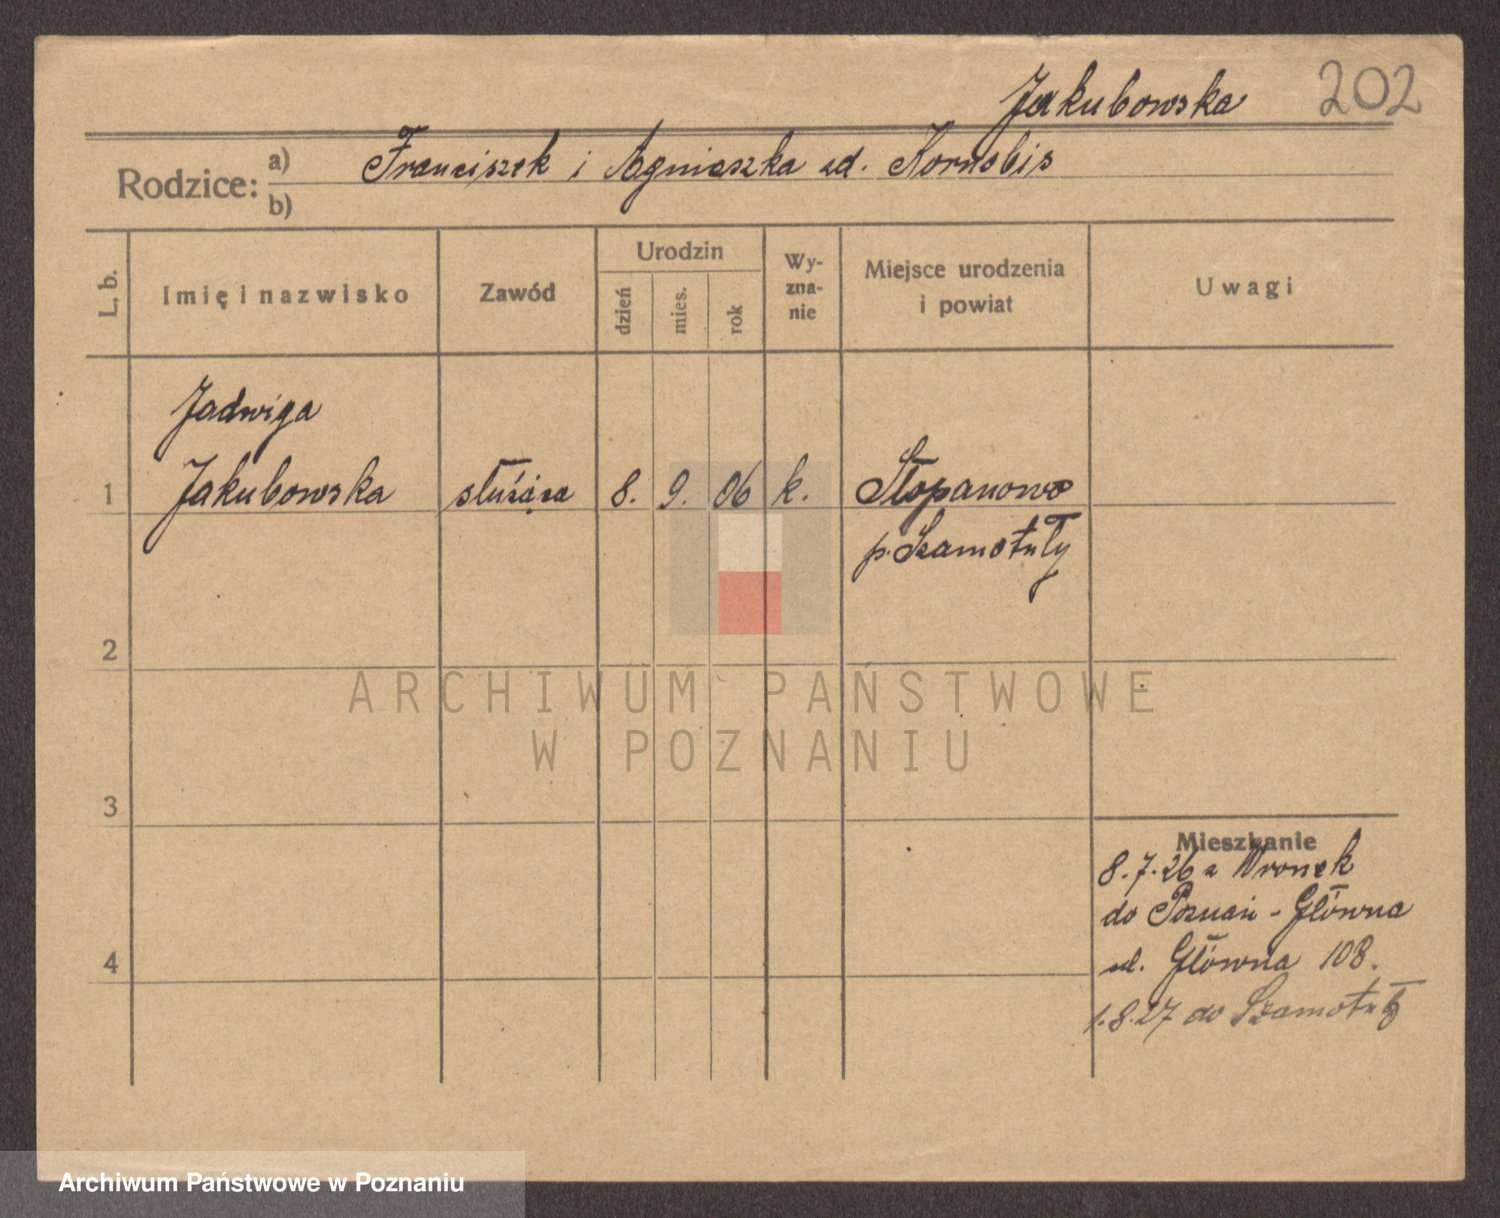 Jakubowska 202
Rodzice: a) Franciszek i Agnieszka zd. Kornobis
b)
L. b. Imię i nazwisko Zawód Urodzin dzień mies. rok Wy-zna-nie Miejsce urodzenia i powiat Uwagi
Jadwiga
1 Jakubowska służąca 8. 9. 06 k. Stopanowo
p. Szamotuły
2
ARCHIWUM PAŃSTWOWE
W POZNANIU
3
Mieszkanie
8.7.26 z Wronek
do Poznań - Główna
4 ul. Główna 108.
1.8.27 do Szamotuły
Archiwum Państwowe w Poznaniu